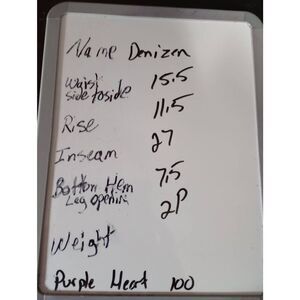 Name Denizen
Waist side to side 15.5
Rise 11.5
Inseam 27
Bottom Hem Leg opening 7.5
Weight 2P
Purple Heart 100